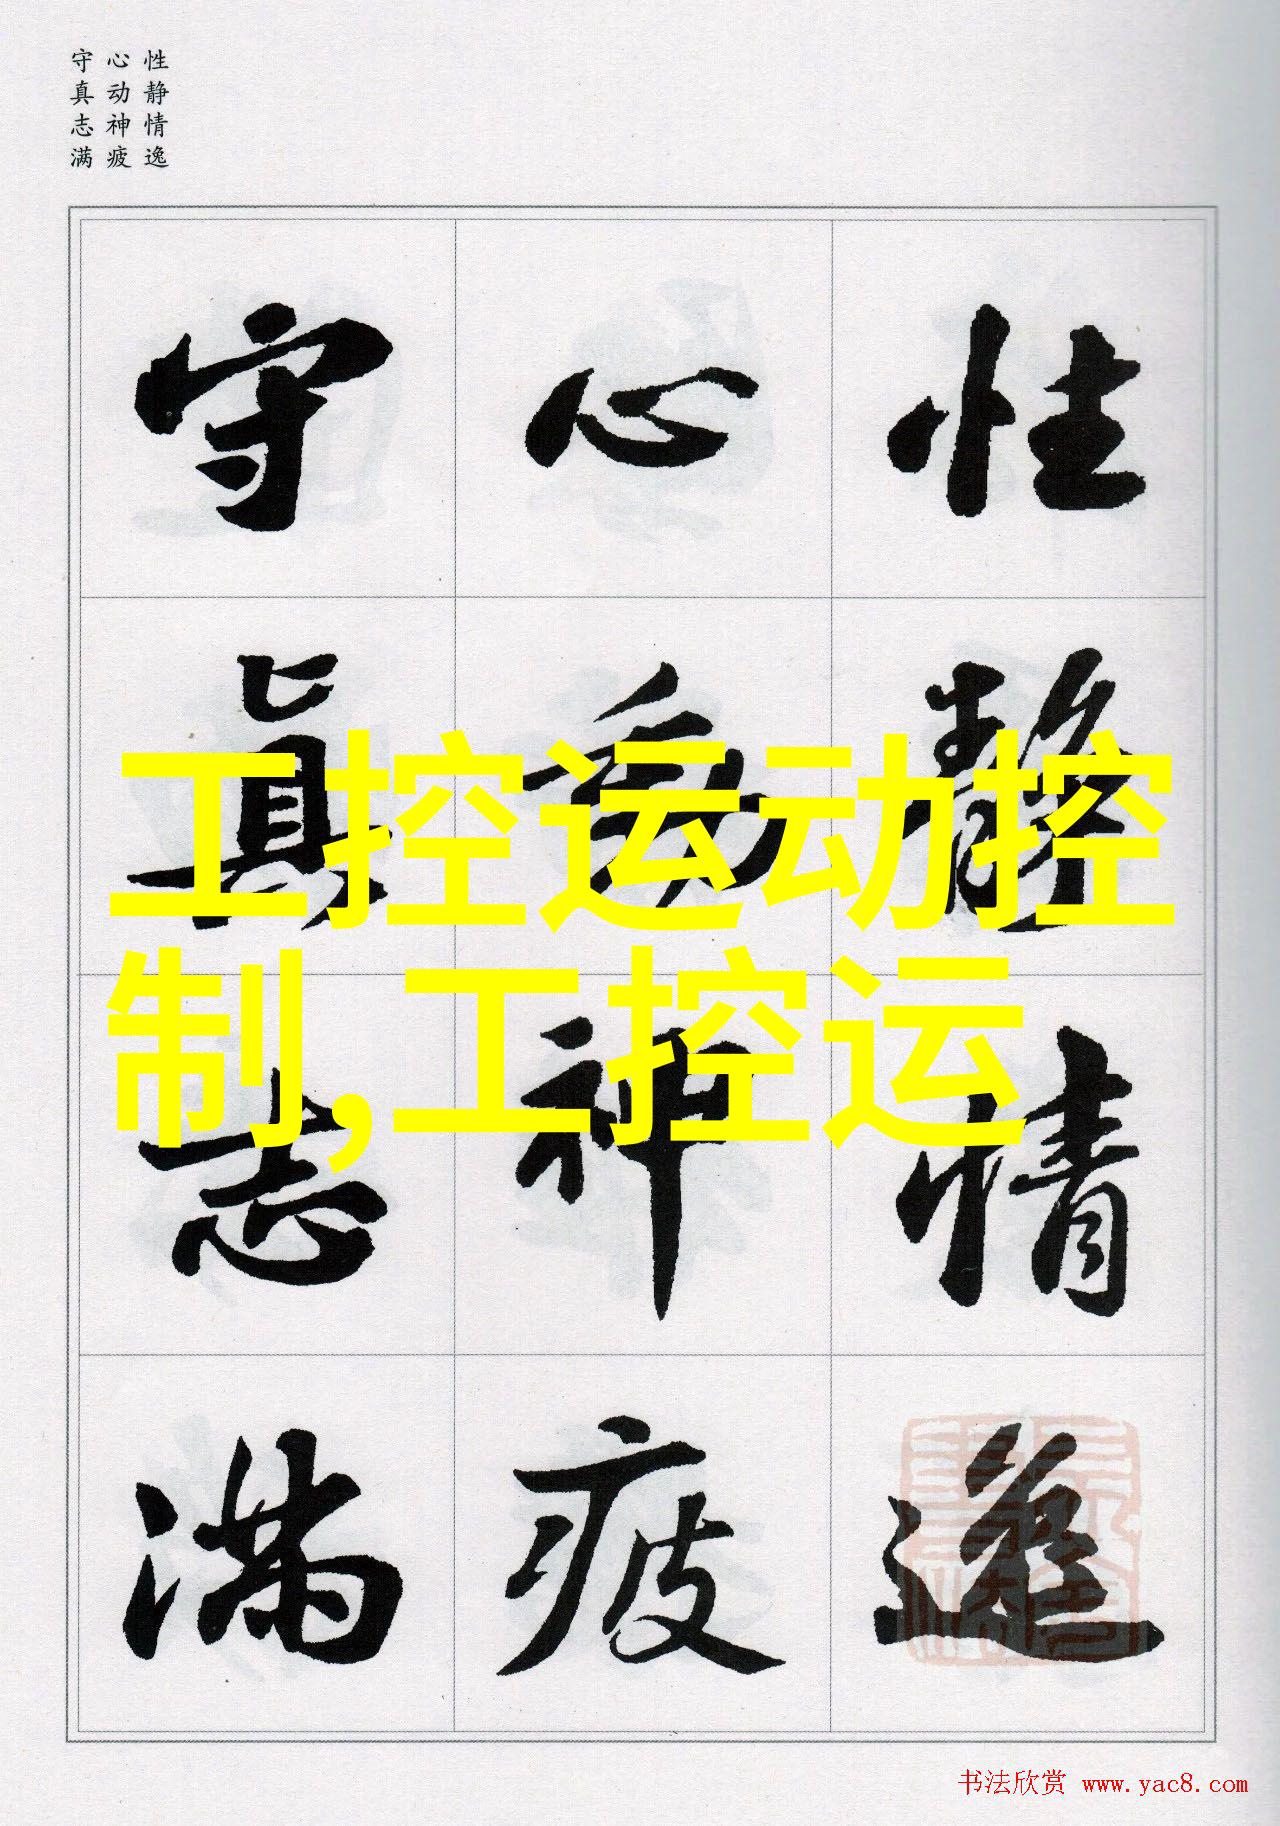 性静情逸
心动神疲
守真志满
性靜情逸
心動神疲
守真志滿
工控运动控
制,工控运
书法欣赏 www.yac8.com